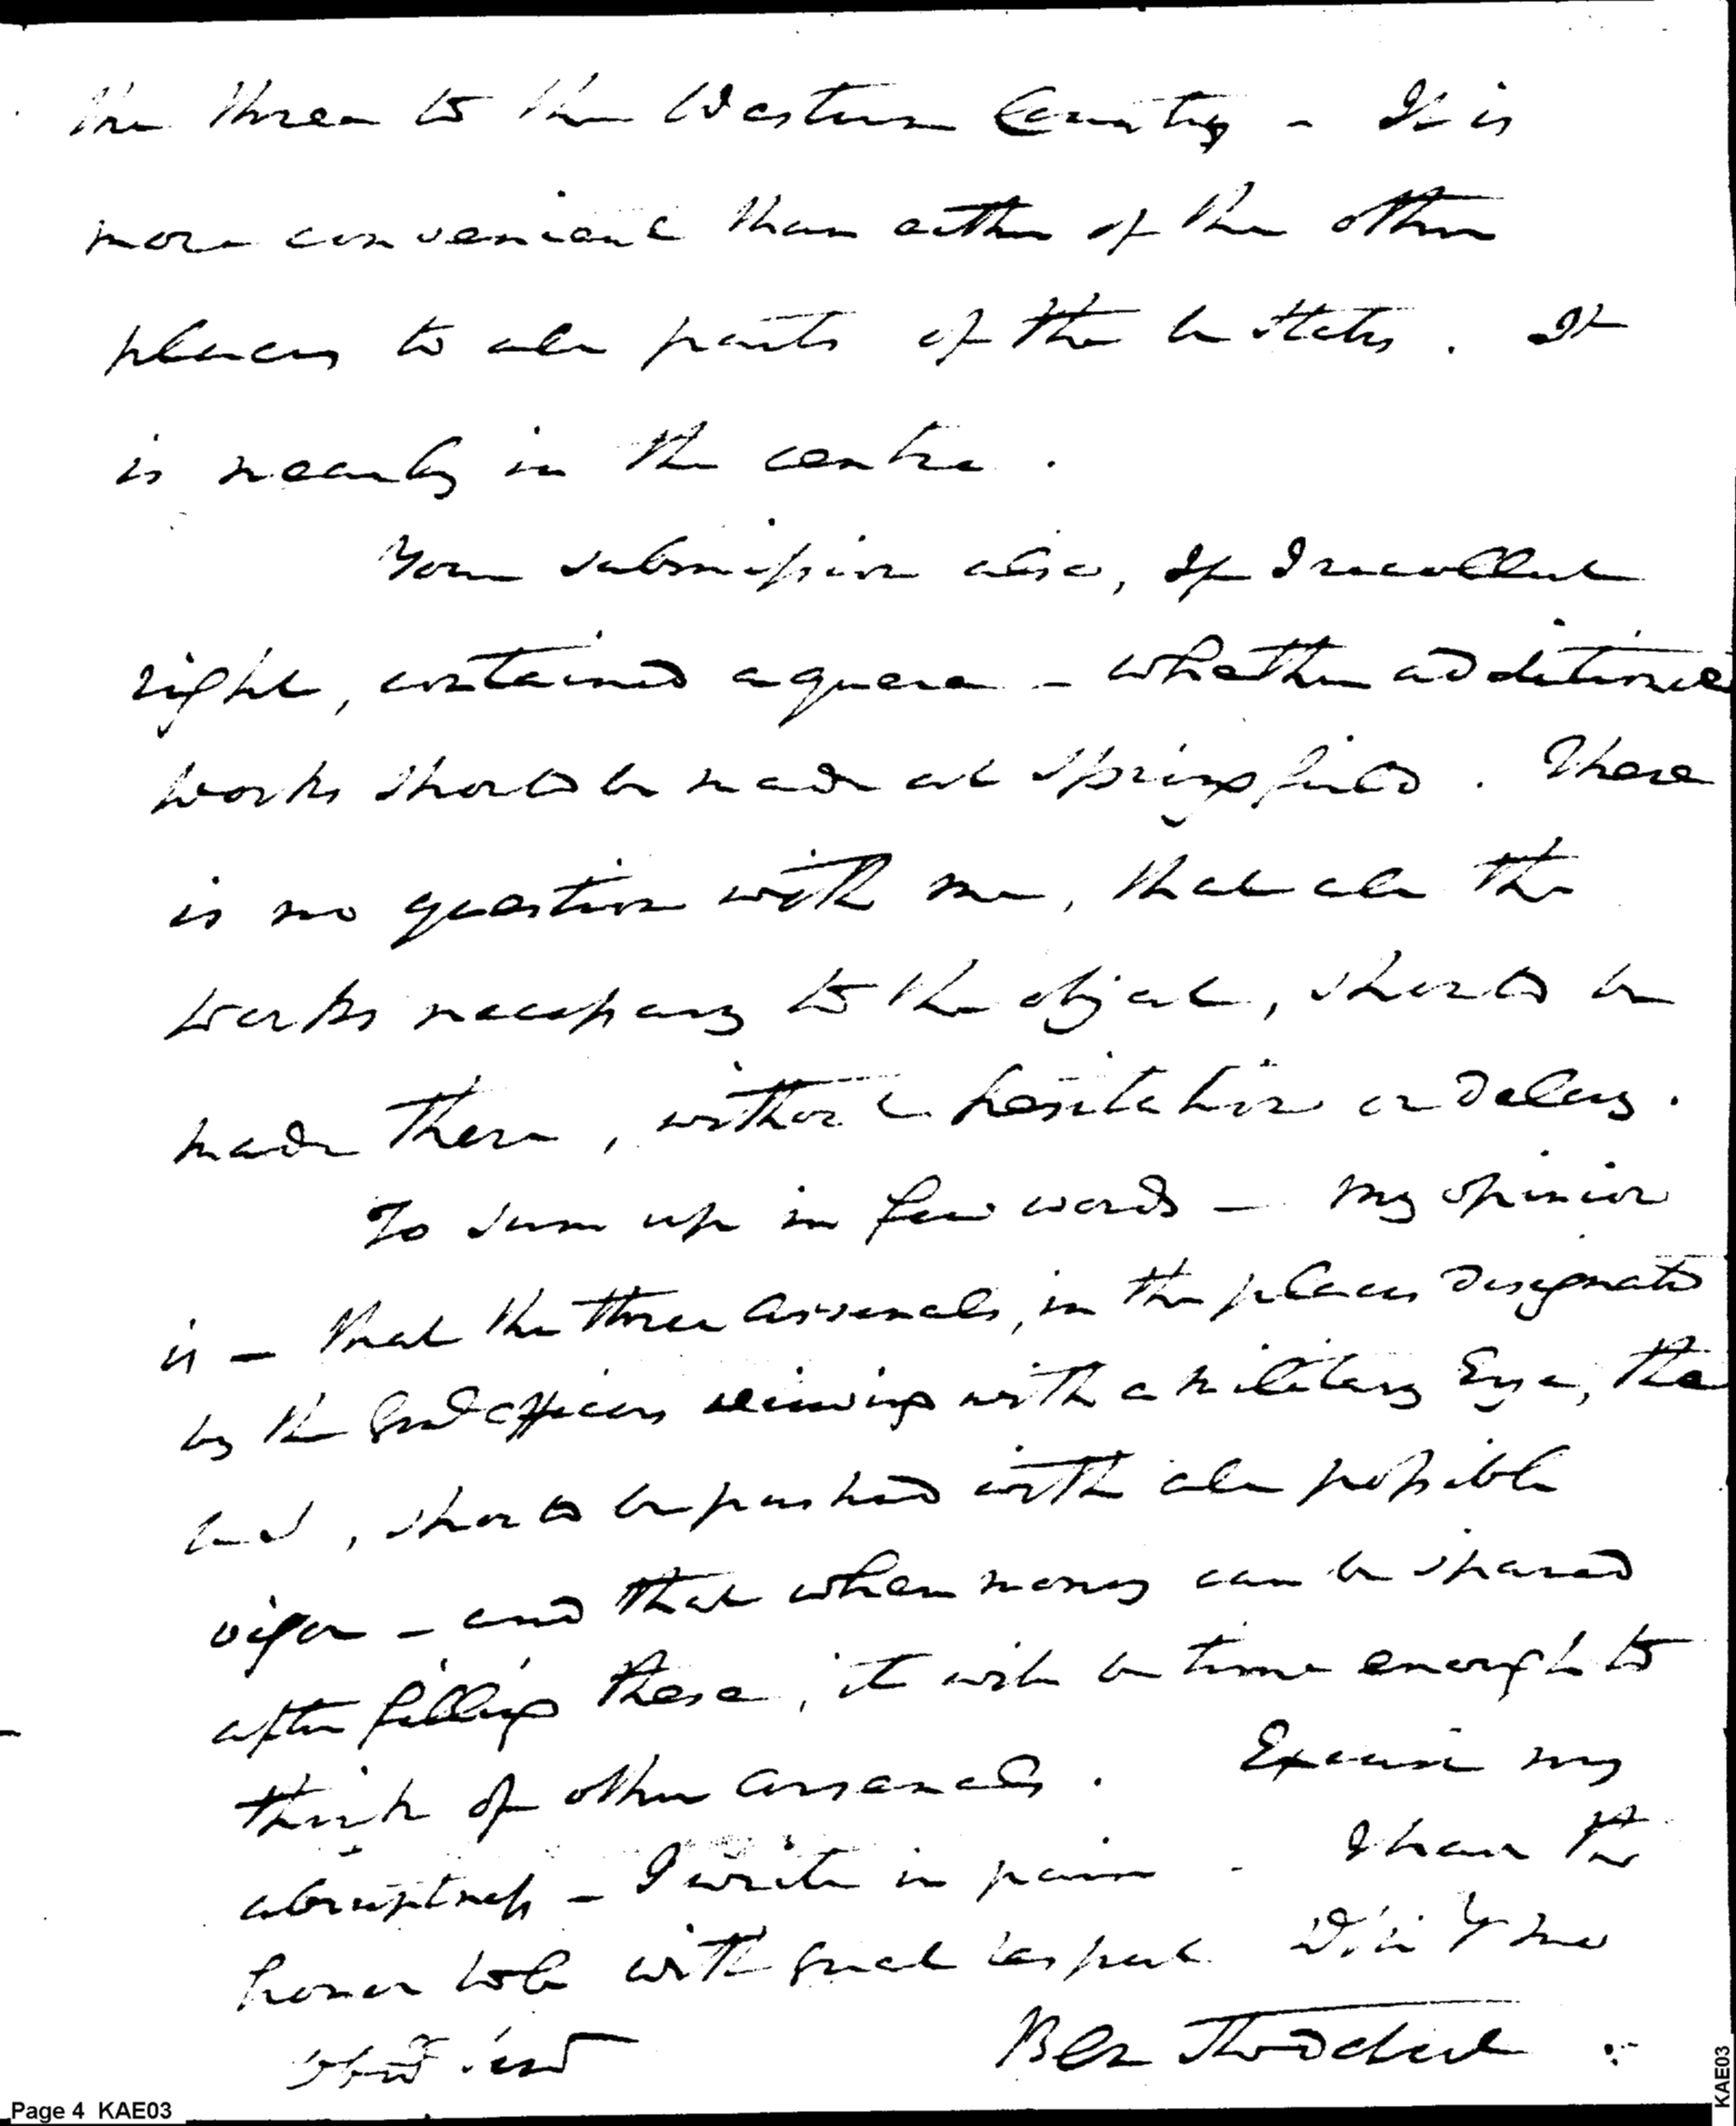 the three to the Western Country - It is
more convenient than either of the other
places to all parts of the states. It
is nearly in the centre.
Your submission also, if I recollect
right, contained a quere - whether additional
works should be made at Springfield. There
is no question with me, that all the
works necessary to the object, should be
made there, without hesitation or delay.
To sum up in few words - my opinion
is - that the three arsenals, in the places designated
by the officers viewing with a military Eye, the
land, should be pushed with all possible
vigor - and that when money can be spared
after filling these, it will be time enough to
think of other arsenals. Excuse my
abruptness - I write in pain. I have the
honor to be with great respect D. Sir Yr mo
obed. servt
Ben Stoddert
Page 4 KAE03
KAE03